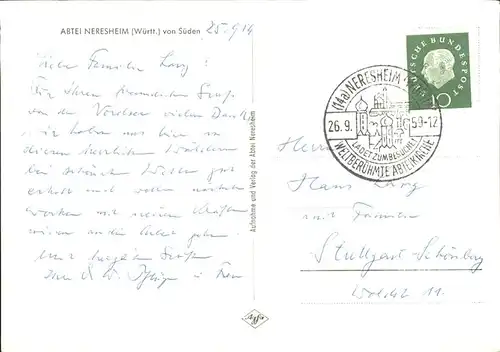 ABTEI NERESHEIM (Württ.) von Süden 25.9.19
Liebe Familie Lorz!
Für Ihren freundlichen Gruß
von der Vielen Dank.
wir haben uns hier in
diesen herrlichen Wäldern
bei schönem Wetter gut
erholt und wollen nächste
Woche mit neuen Kräften
wieder an die Arbeit gehen.
Mit herzlichen Grüßen
u. Frau
Aufnahme und Verlag der Abtei Neresheim
Agfa
DEUTSCHE BUNDESPOST
10
(14a) NERESHEIM
26.9. 59-12
LADET ZUM BESUCH
WELTBERÜHMTE ABTEIKIRCHE
Herrn
Hans Lorz
mit Familie
Stuttgart-Schönberg
11.